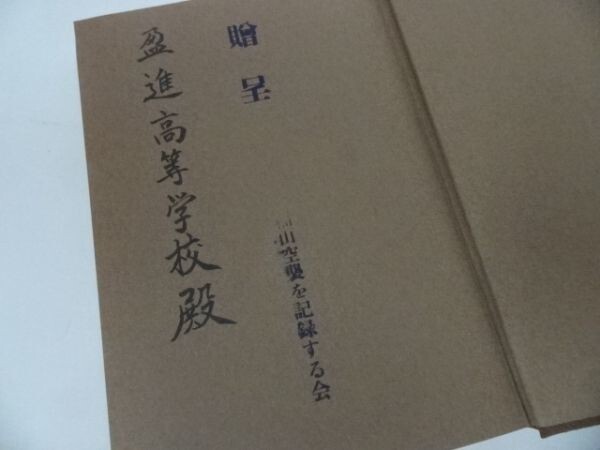 贈呈
盈進高等学校殿
山空襲を記録する会